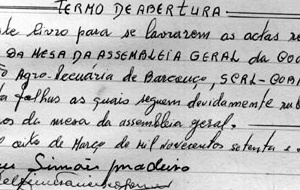 TERMO DE ABERTURA
ste livro para se lavrarem as actas re
DA MESA DA ASSEMBLEIA GERAL da Coo
ão Agro-Pecuária de Barcouço, SCRL-COBA
ta folhas as quais seguem devidamente nu
os da mesa da assembleia geral.
oito de Março de mil novecentos setenta e
Simões Madeiro